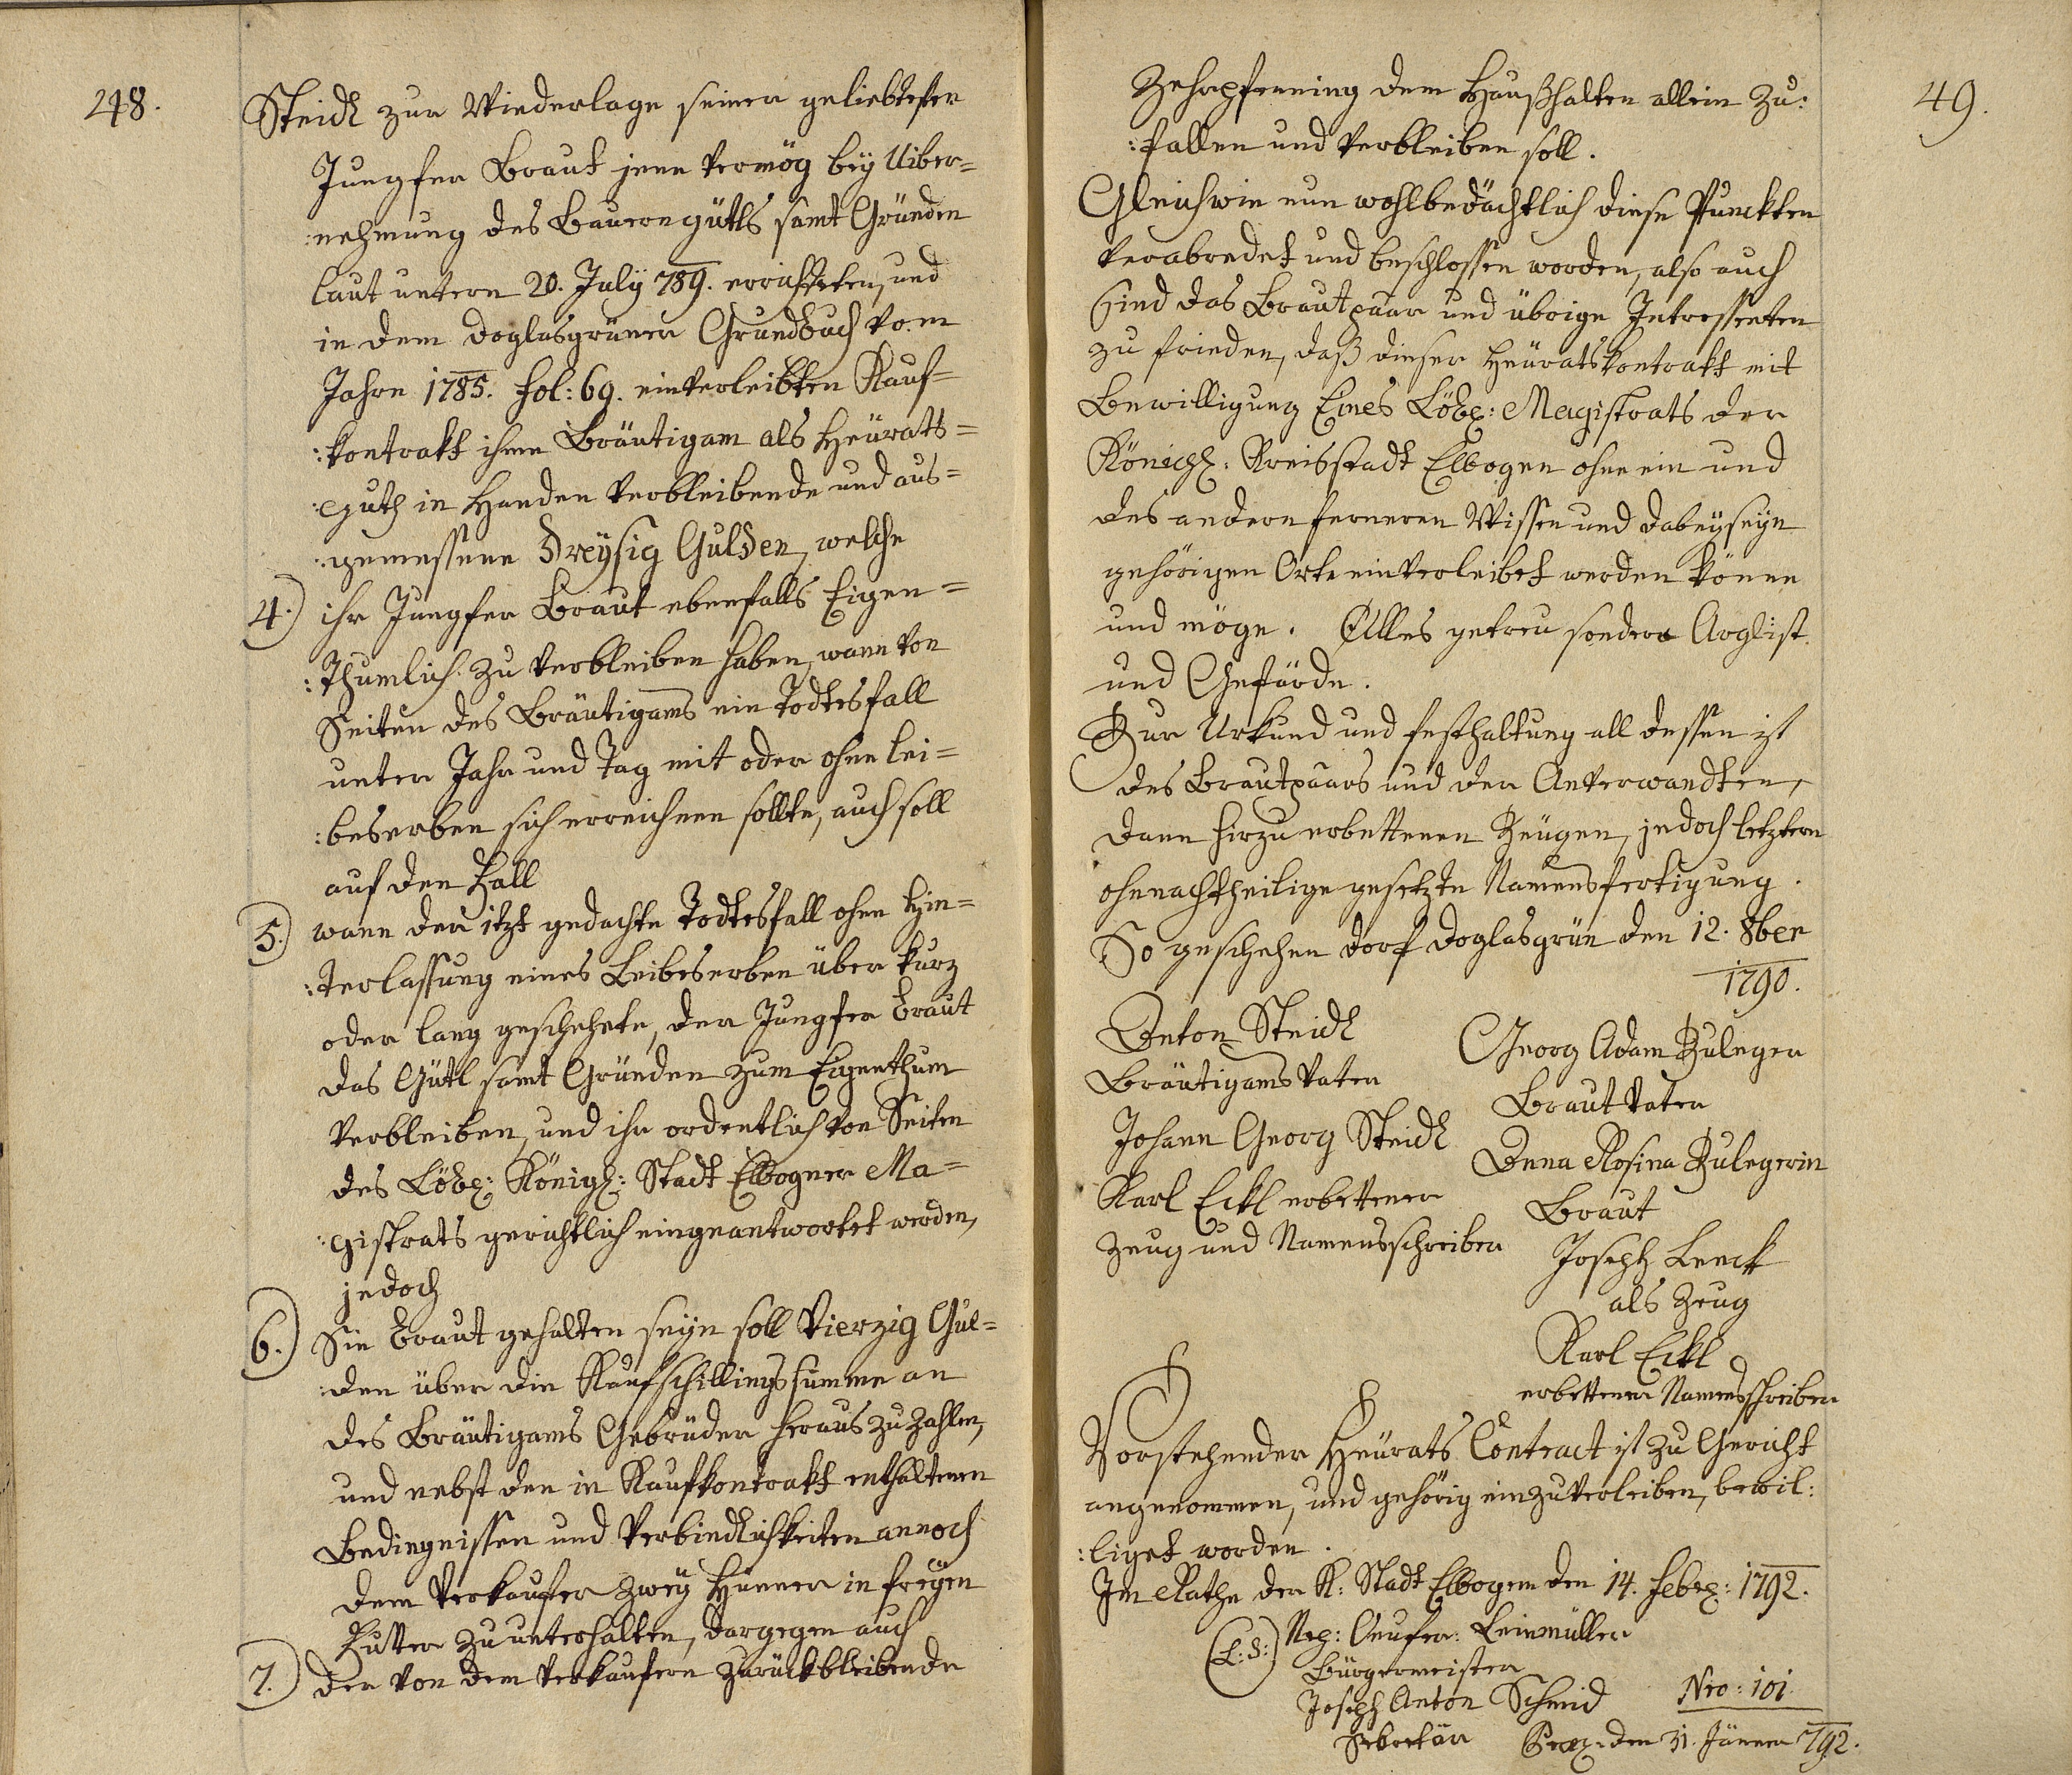 248.
Steidl zur Wiederlage seiner geliebtesten
Jungfer Braut jene vermög bey Uiber-
:nehmung des Bauerngütls samt Gründen
laut untern 20. July 789. errichteten, und
in dem Doglasgrüner Grundbuch vom
Jahre 1785. Fol: 69. einverleibten Kauf-
:kontrakt ihme Bräutigam als Heürats-
:guth in Handen verbleibende und aus-
:gemessene Dreysig Gulden, welche
4.) ihr Jungfer Braut ebenfalls Eigen-
:thumlich zu verbleiben haben, wann von
Seiten des Bräutigams ein Todtesfall
unter Jahr und Tag mit oder ohne Lei-
:beserben sich erreichnen sollte, auch soll
auf den Fall
5.) wann der itzt gedachte Todtesfall ohne Hin-
:terlassung eines Leibeserben über kurz
oder lang geschehete, der Jungfer Braut
das Gütl samt Gründen zum Eigenthum
verbleiben, und ihr ordentlich von Seiten
des Löbl: Königl: Stadt Elbogner Ma-
:gistrats gerichtlich eingeantwortet werden,
jedoch
6.) Sie Braut gehalten seyn soll Vierzig Gul-
:den über die Kaufschillingssumme an
des Bräutigams Gebrüder heraus zu zahlen,
und nebst den in Kaufkontrakt enthaltenen
Bedingnissen und Verbindlichkeiten annoch
dem Verkaufer zwey Hünner in freyen
Futter zu unterhalten, dargegen auch
7.) der von dem Verkaufern zurückbleibende
49.
Zehrpfenning dem Haußhalten allein zu:
:fallen und verbleiben soll.
Gleichwie nun wohlbedächtlich diese Punckten
verabredet und beschlossen worden, also auch
sind das Brautpaar und übrige Intressenten
zu frieden, daß dieser Heüratskontrakt mit
Bewilligung Eines Löbl: Magistrats der
Königl: Kreisstadt Elbogen ohne ein und
des andern ferneren Wissen und dabeyseyn
gehörigen Orts einverleibet werden könne
und möge. Alles getreu sonders Arglist
und Gefärde.
Zur Urkund und festhaltung all dessen ist
des Brautpaars und der Anverwandten,
dann hirzu erbettenen Zeügen, jedoch letztern
ohnnachtheilige gesetzte Namensfertigung.
So geschehen Dorf Doglasgrün den 12. 8ber
1790.
Anton Steidl
Bräutigams Vater
Johann Georg Steidl
Karl Eckl erbettener
Zeug und Namensschreiber
Georg Adam Zuleger
Braut Vater
Anna Rosina Zulegerin
Braut
Joseph Lenck
als Zeug
Karl Eckl
erbettener Namensschreiber
Vorstehender Heürats Contract ist zu Gericht
angenommen, und gehörig einzuverleiben, bewil:
:liget worden.
Im Rathe der K: Stadt Elbogen den 14. Febr: 1792.
(L: S:) Leinmüller
Bürgermeister
Joseph Anton Schmid
Sekretär
Nro: 101
Praes: den 31. Jänner 792.